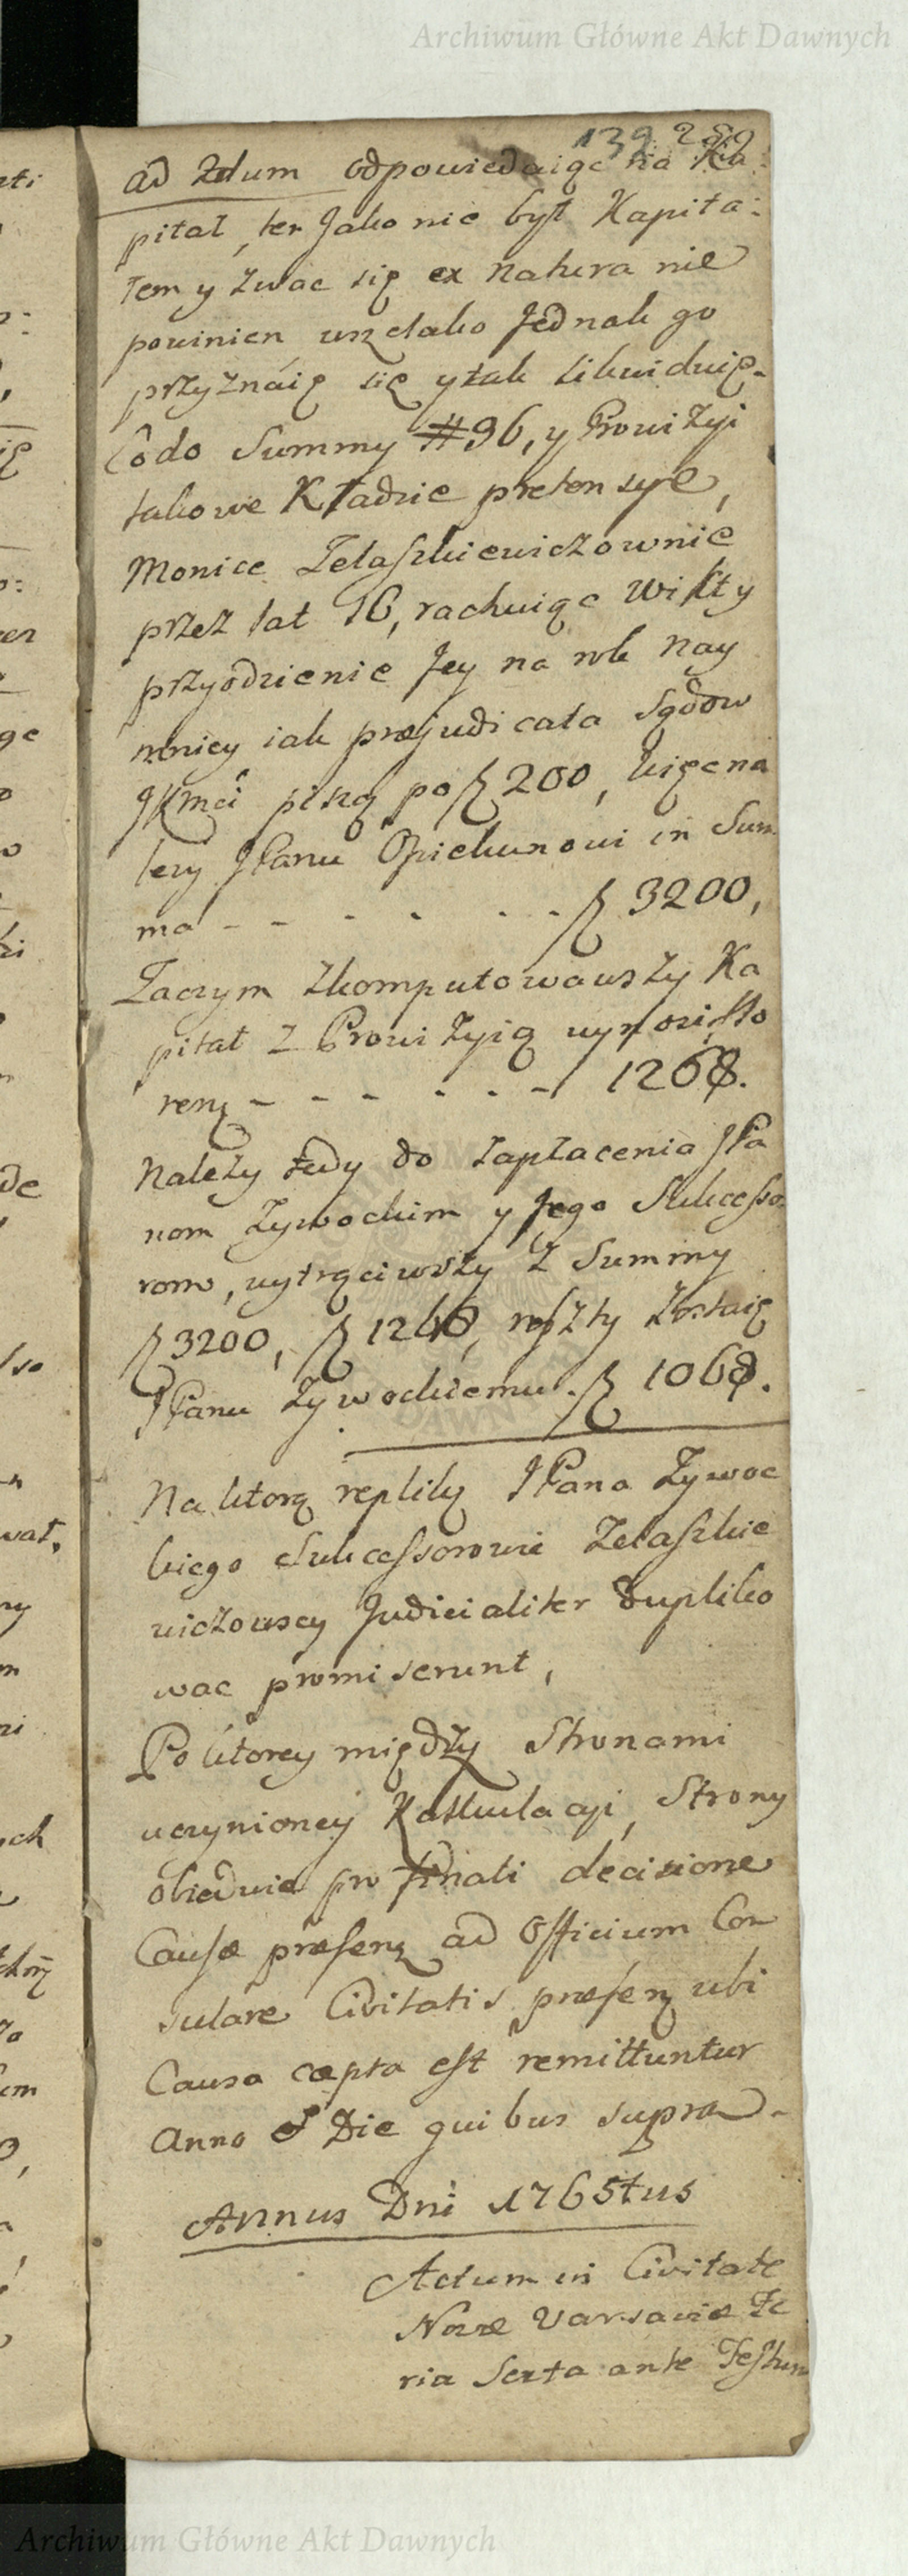 Archiwum Główne Akt Dawnych
139 282
ad 2dum odpowiedaiąc na Ka:
pitał, ten Jako nie był Kapita:
łem y zwac się ex natura nie
powinien wszelako Jednak go
przyznáię się y tak likwiduię
Co do Summy # 96, y Prowizyi
takowe Kładzie pretensye,
Monice Zelaszkiewiczownie
przez lat 16, rachuiąc Wikt y
przyodzienie Jey na rok nay
mniey iak præjudicata Sądow
JKmci piszą po fl 200, więc na
leży JPanu Opiekunowi in Sum
ma - - - - - - - fl 3200,
Zaczym zkomputowawszy Ka
pitał z Prowizyią wynosi flo
renę - - - - - - 1268.
Należy tedy do zapłacenia JPa
nom Zywockim y Jego Sukcesso
rom, wytrąciwszy z Summy
fl 3200, fl 1268, reszty zostaię
JPanu Zywockiemu. fl 1068.
Na ktorą replikę JPana Zywoc
kiego Sukcessorowie Zelaszkie
wiczowscy Judicialiter dupliko
wac promiserunt,
Po ktorey między Stronami
uczynioney Kalkulacyi, Strony
obiedwie pro finali decisione
Causæ præsenę ad Officium Con
sulare Civitatis præsenę ubi
Causa cæpta est remittuntur
Anno & Die quibus supra.
Annus Dni 1765tus
Actum in Civitate
Novæ Varsaviæ Fe
ria Sexta ante Festum
Archiwum Główne Akt Dawnych